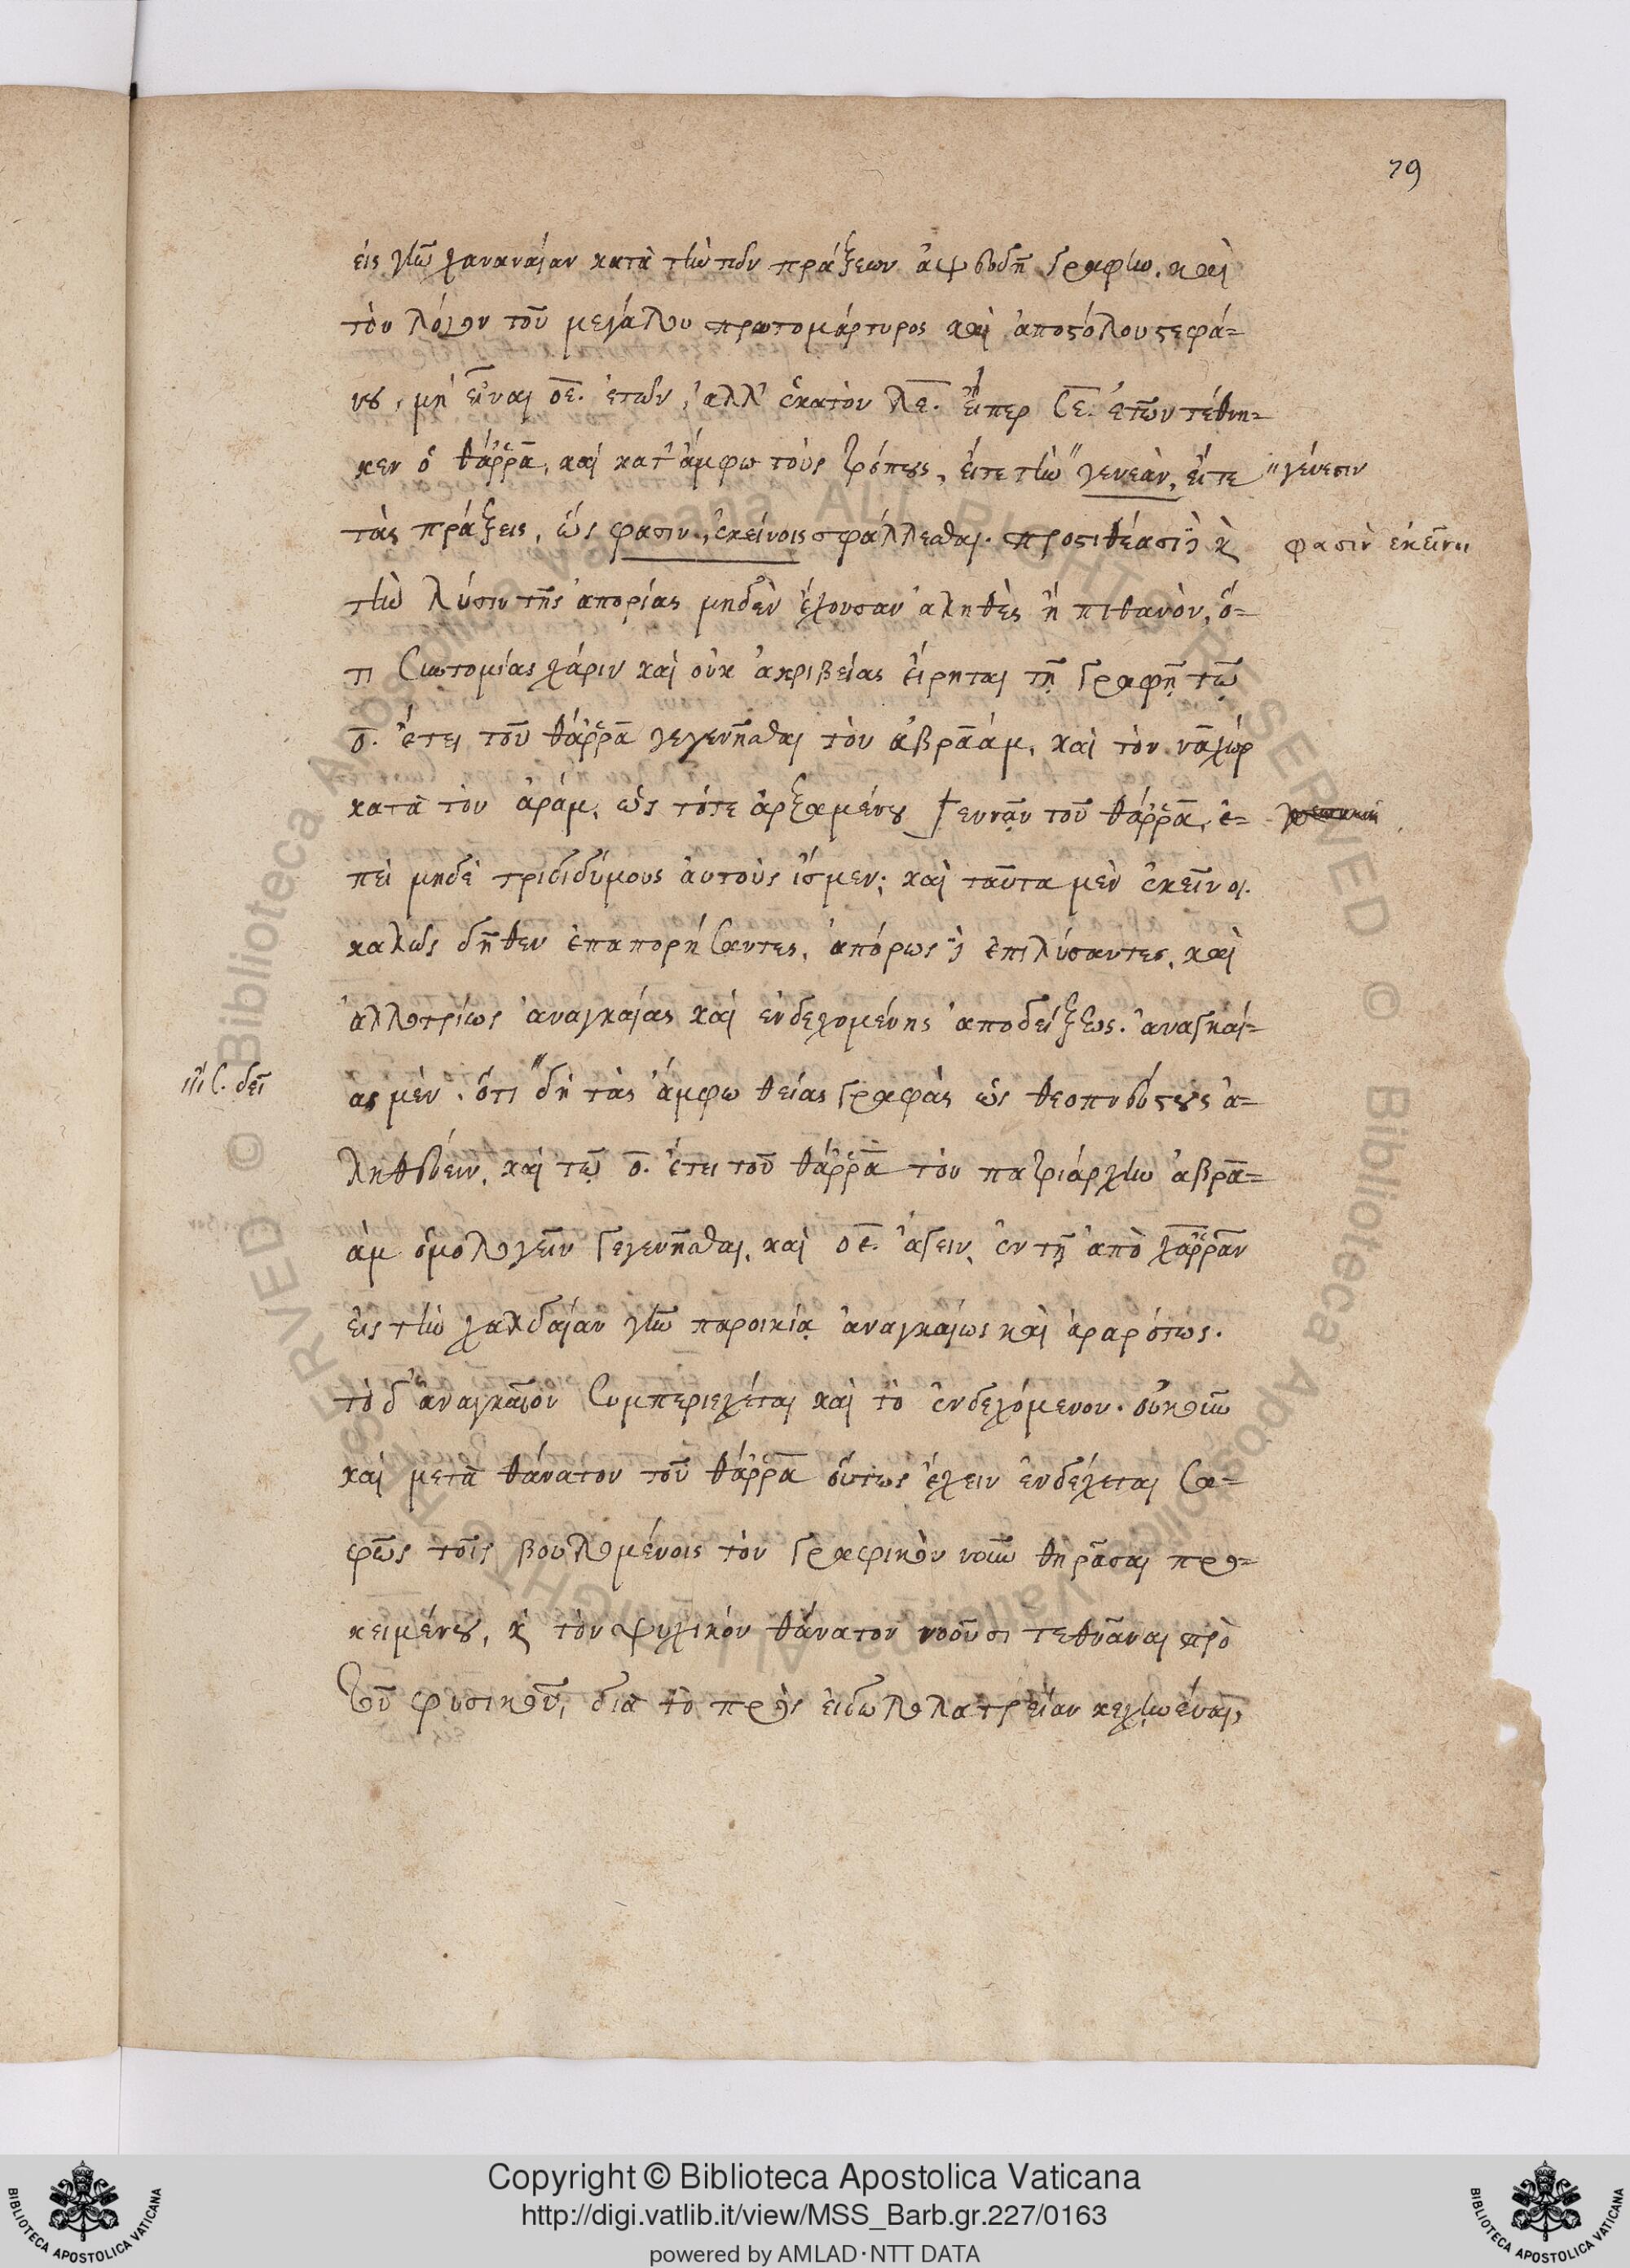 79
εἰς γῆν χαναναίαν κατὰ τὴν τῶν πράξεων ἀψευδῆ γραφὴν. καὶ
τὸν λόγον τοῦ μεγάλου πρωτομάρτυρος καὶ ἀποστόλου στεφά-
νου, μὴ εἶναι οε. ἐτῶν, ἀλλ' ἑκατὸν λε. εἴπερ σε. ἐτῶν τέθνη-
κεν ὁ θάῤῥα, καὶ κατ' ἄμφω τοὺς τρόπους, εἴτε τὴν " γενεὰν, εἴτε " γένεσιν
τὰς πράξεις, ὥς φασιν, ἐκείνοις σφάλλεσθαι. προστιθέασι δὲ καὶ φασὶν ἐκεῖνοι
τὴν λύσιν τῆς ἀπορίας μηδὲν ἔχουσαν ἀληθὲς ἢ πιθανὸν, ὅ-
τι συντομίας χάριν καὶ οὐκ ἀκριβείας εἴρηται τῇ γραφῇ τῷ
ο. ἔτει τοῦ θάῤῥα γεγενῆσθαι τὸν ἀβραάμ, καὶ τὸν ναχώρ
κατὰ τὸν ἀράμ, ὡς τότε ἀρξαμένου γεννᾷν τοῦ θάῤῥα, ἐ-
πεὶ μηδὲ τριδιδύμους αὐτοὺς ἴσμεν; καὶ ταῦτα μὲν ἐκεῖνοι.
καλῶς δῆθεν ἐπαπορήσαντες, ἀπόρως δὲ ἐπιλύσαντες, καὶ
ἀλλοτρίως ἀναγκαίας καὶ ἐνδεχομένης ἀποδείξεως. ἀναγκαί-
ας μὲν. ὅτι " δὴ τὰς ἄμφω θείας γραφὰς ὡς θεοπνεύστους ἀ-
δεῖ
ληθεύειν, καὶ τῷ ο. ἔτει τοῦ θάῤῥα τὸν πατριάρχην ἀβρα-
ὰμ ὁμολογεῖν γεγενῆσθαι, καὶ οε. ἄγειν, ἐν τῇ ἀπὸ χαῤῥὰν
εἰς τὴν χαλδαίαν γῆν παροικίᾳ ἀναγκαίως καὶ ἀραρότως.
τὸ δ' ἀναγκαῖον συμπεριέχεται καὶ τὸ ἐνδεχόμενον. οὐκοῦν
καὶ μετὰ θάνατον τοῦ θάῤῥα οὕτως ἔχειν ἐνδέχεται σα-
φῶς τοῖς βουλομένοις τὸν γραφικὸν νοῦν θηρᾶσαι προ-
κειμένου, καὶ τὸν ψυχικὸν θάνατον νοοῦσι τεθνᾶναι πρὸ
τοῦ φυσικοῦ, διὰ τὸ πρὸς εἰδωλολατρείαν κεχηνέναι,
Copyright © Biblioteca Apostolica Vaticana
http://digi.vatlib.it/view/MSS_Barb.gr.227/0163
powered by AMLAD·NTT DATA
BIBLIOTECA APOSTOLICA VATICANA
BIBLIOTECA APOSTOLICA VATICANA